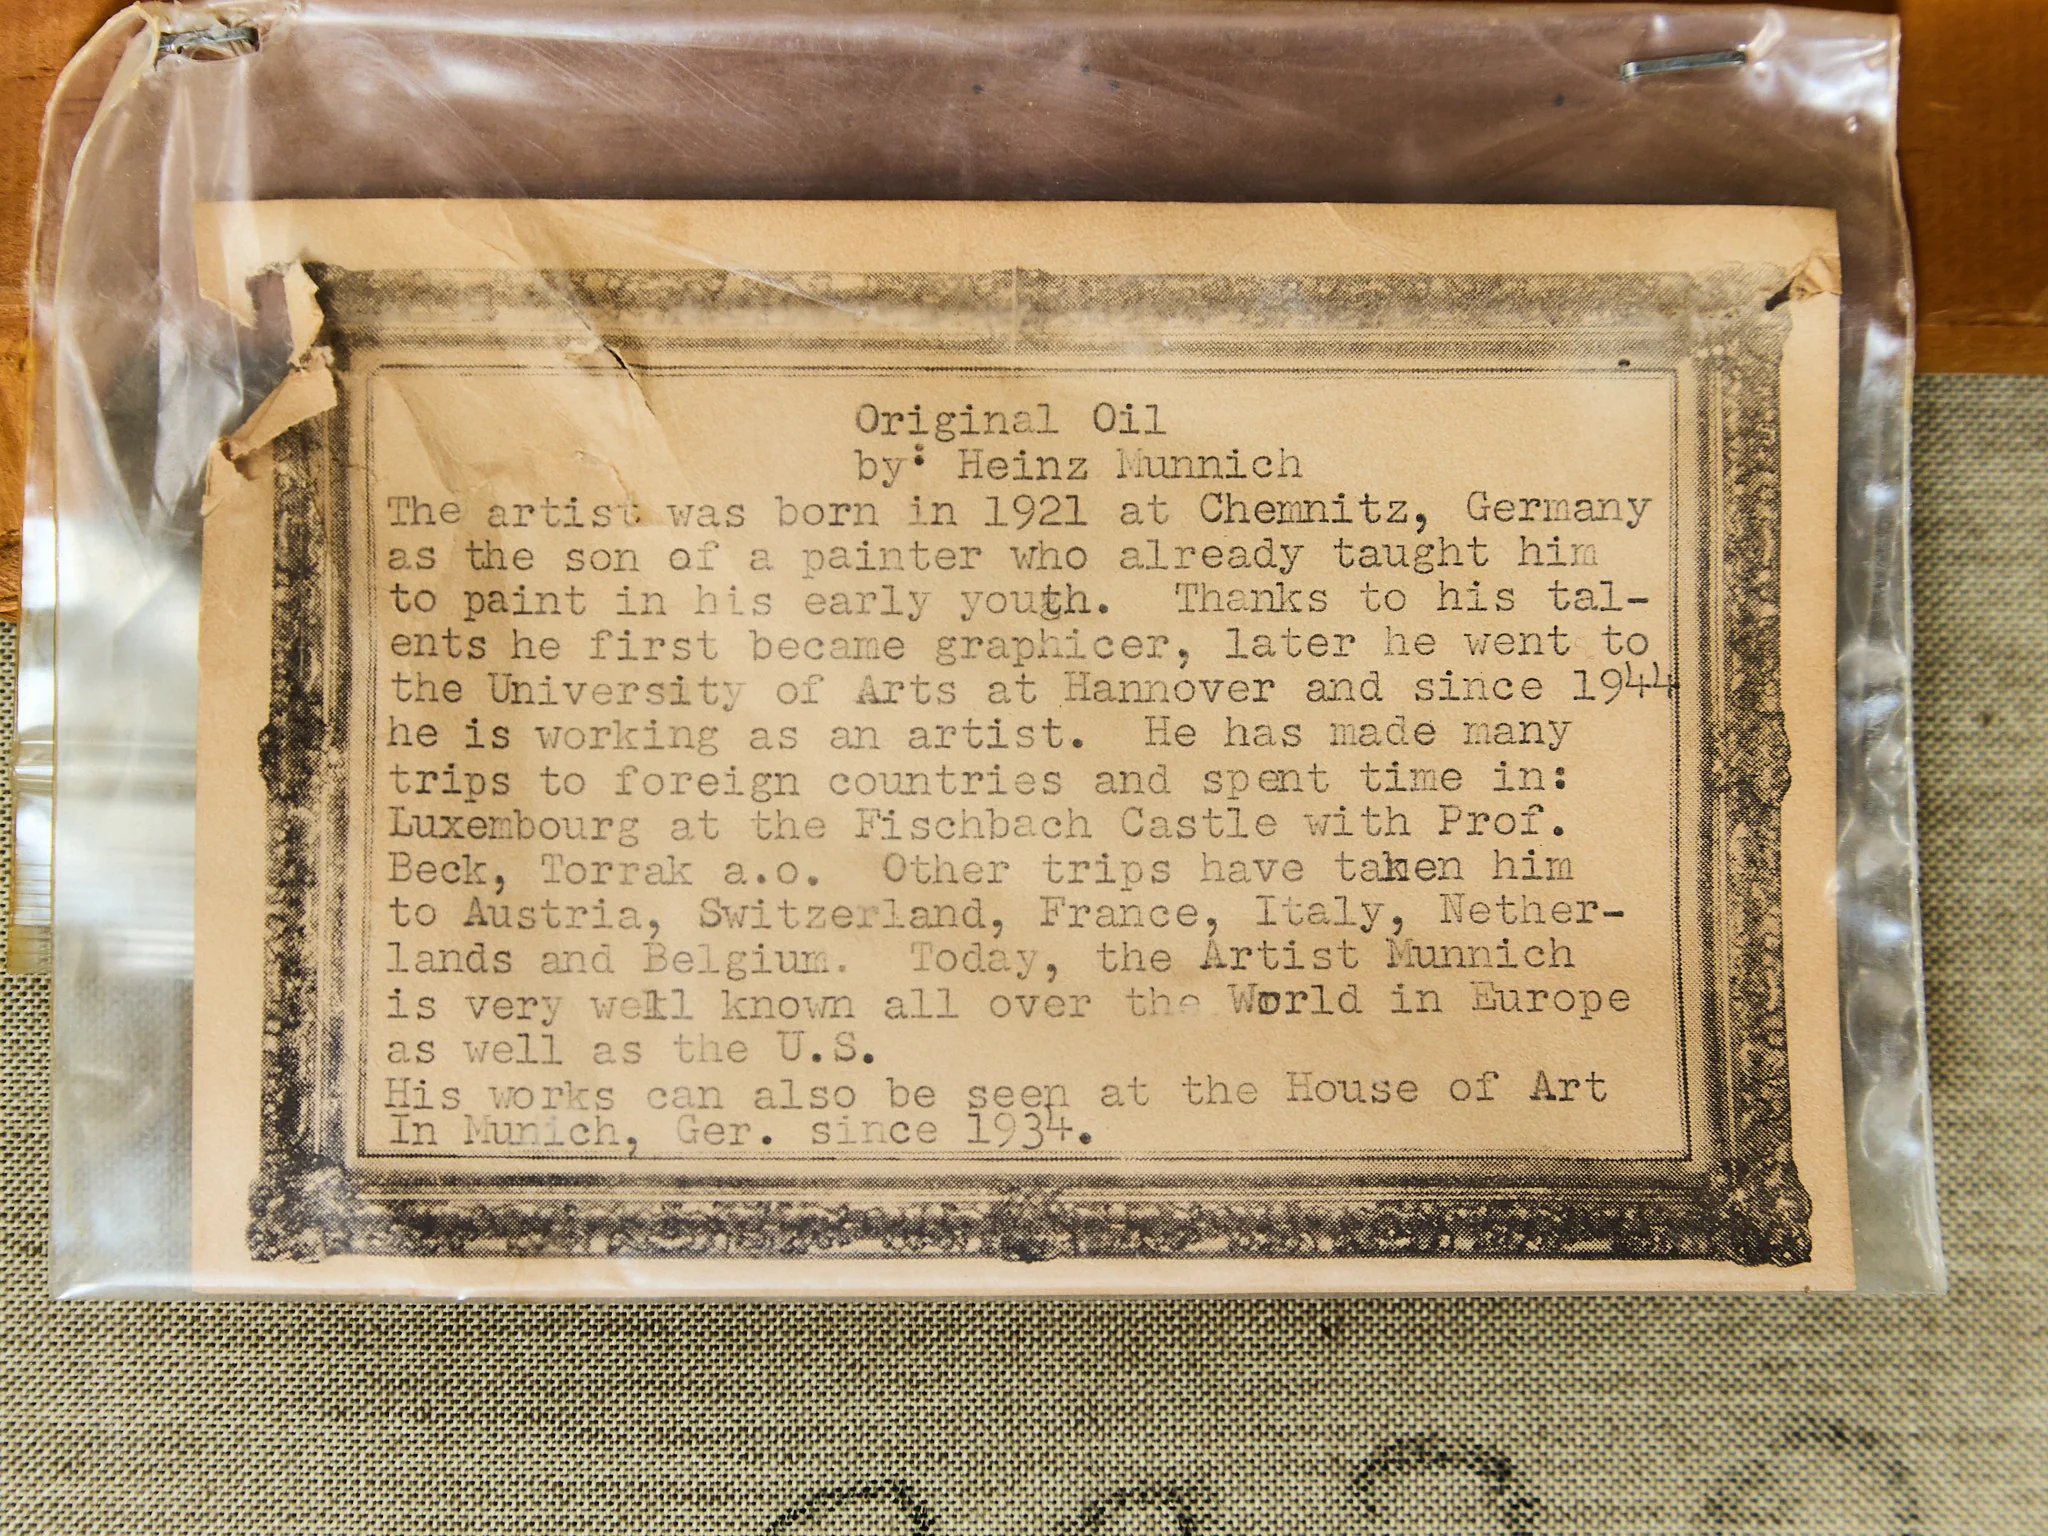 Original Oil
by: Heinz Munnich
The artist was born in 1921 at Chemnitz, Germany
as the son of a painter who already taught him
to paint in his early youth.  Thanks to his tal-
ents he first became graphicer, later he went to
the University of Arts at Hannover and since 1944
he is working as an artist.  He has made many
trips to foreign countries and spent time in:
Luxembourg at the Fischbach Castle with Prof.
Beck, Torrak a.o.  Other trips have taken him
to Austria, Switzerland, France, Italy, Nether-
lands and Belgium.  Today, the Artist Munnich
is very well known all over the World in Europe
as well as the U.S.
His works can also be seen at the House of Art
In Munich, Ger. since 1934.